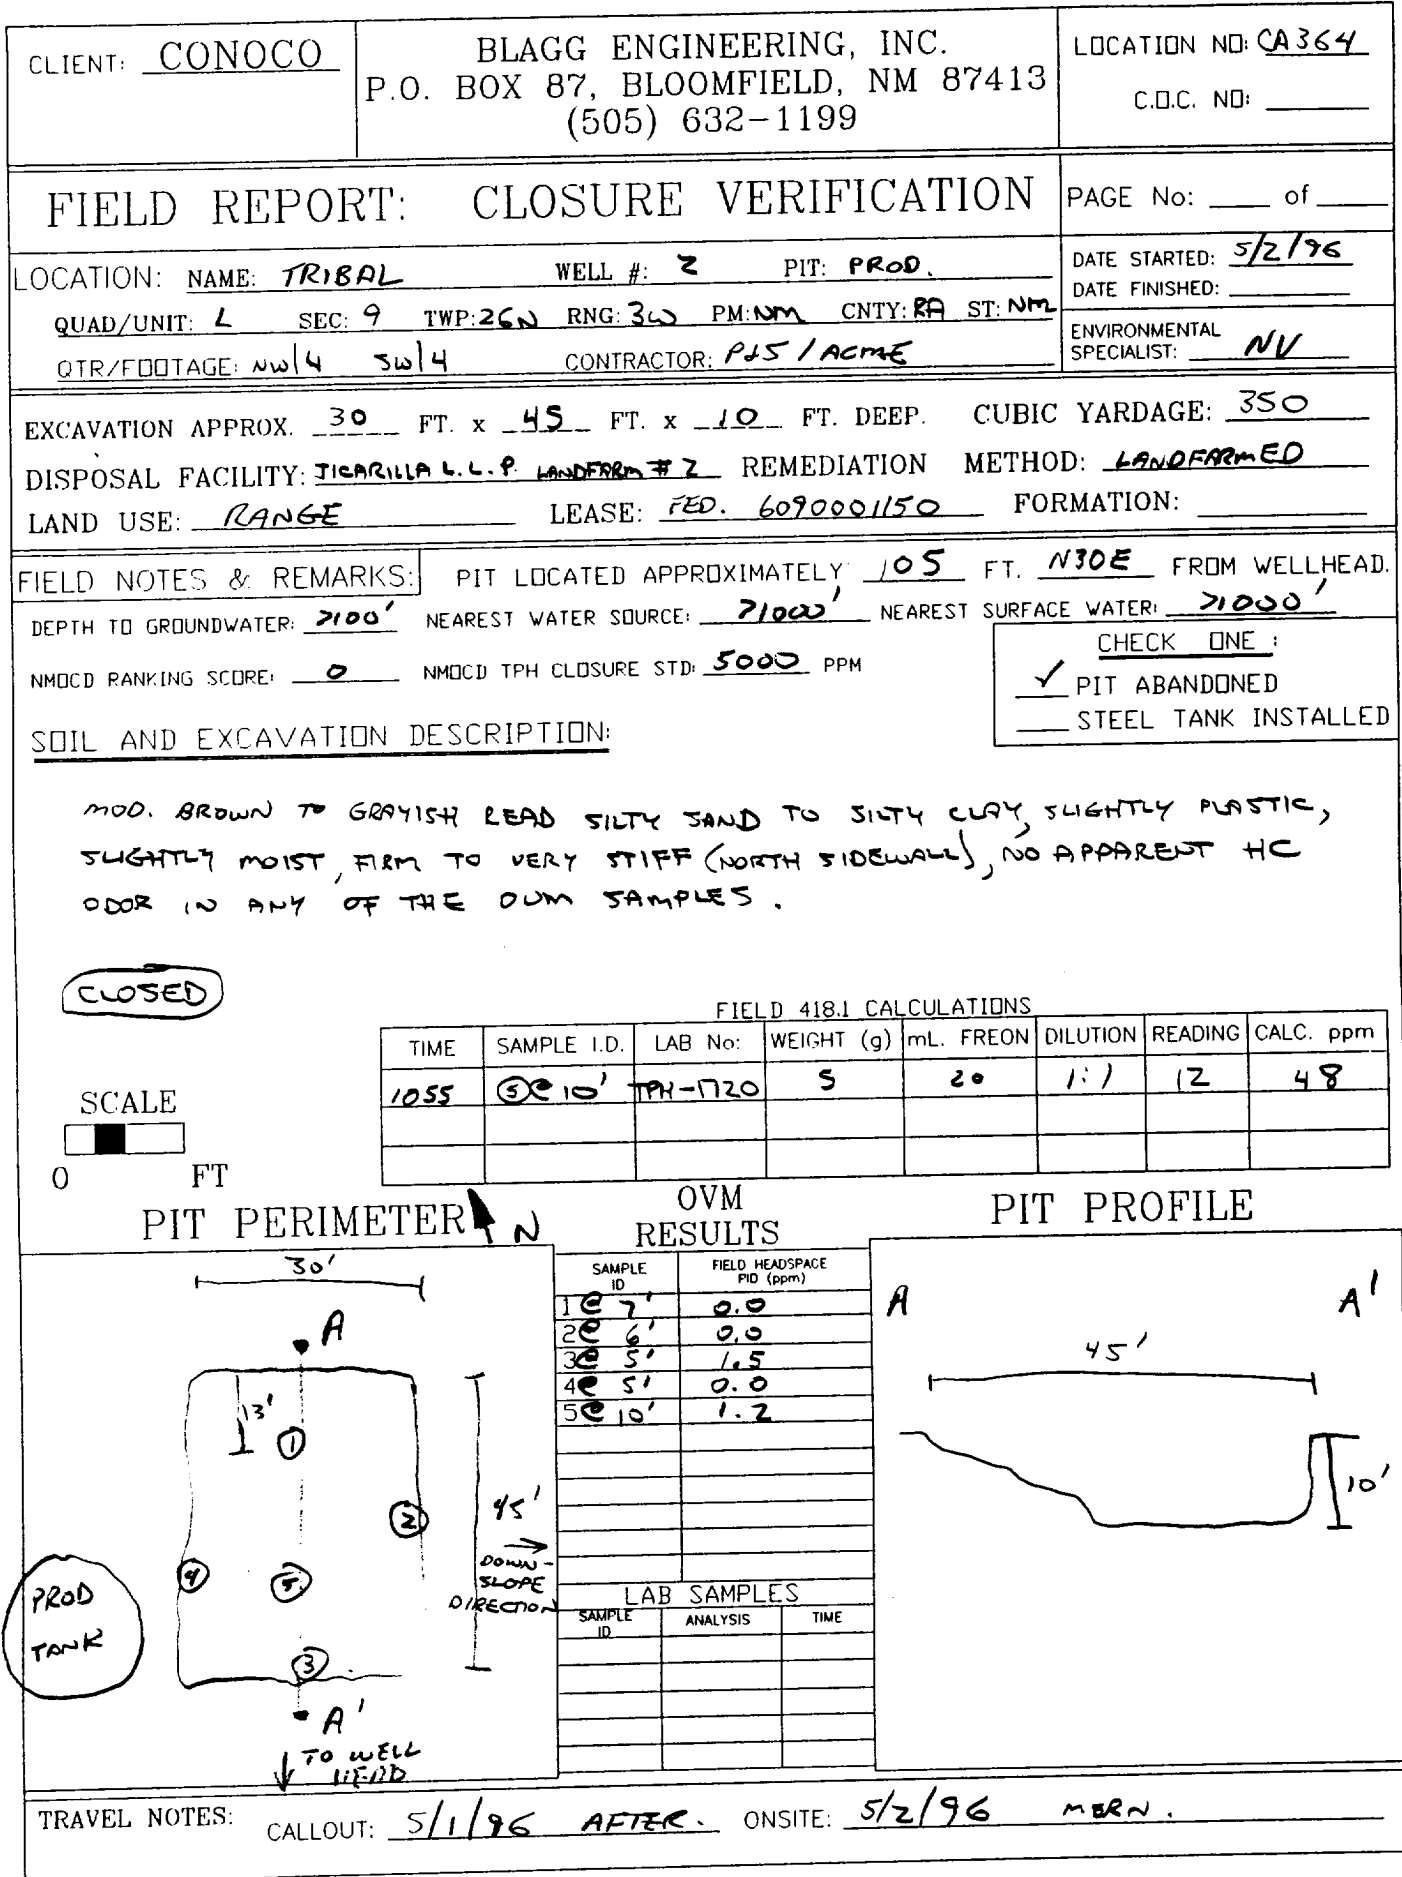 CLIENT: CONOCO
BLAGG ENGINEERING, INC.
P.O. BOX 87, BLOOMFIELD, NM 87413
(505) 632-1199
LOCATION NO: CA364
C.O.C. NO:
FIELD REPORT: CLOSURE VERIFICATION
PAGE No: ____ of ____
LOCATION: NAME: TRIBAL WELL #: 2 PIT: PROD.
QUAD/UNIT: L SEC: 9 TWP: 26N RNG: 3W PM: NM CNTY: RA ST: NM
QTR/FOOTAGE: NW/4 SW/4 CONTRACTOR: P+S / ACME
DATE STARTED: 5/2/96
DATE FINISHED:
ENVIRONMENTAL
SPECIALIST: NV
EXCAVATION APPROX. 30 FT. x 45 FT. x 10 FT. DEEP. CUBIC YARDAGE: 350
DISPOSAL FACILITY: JICARILLA L.L.P. LANDFARM # 2 REMEDIATION METHOD: LANDFARMED
LAND USE: RANGE LEASE: FED. 6090001150 FORMATION:
FIELD NOTES & REMARKS: PIT LOCATED APPROXIMATELY 105 FT. N30E FROM WELLHEAD.
DEPTH TO GROUNDWATER: >100' NEAREST WATER SOURCE: >1000' NEAREST SURFACE WATER: >1000'
NMOCD RANKING SCORE: 0 NMOCD TPH CLOSURE STD: 5000 PPM
CHECK ONE :
✓ PIT ABANDONED
STEEL TANK INSTALLED
SOIL AND EXCAVATION DESCRIPTION:
MOD. BROWN TO GRAYISH READ SILTY SAND TO SILTY CLAY, SLIGHTLY PLASTIC,
SLIGHTLY MOIST, FIRM TO VERY STIFF (NORTH SIDEWALL), NO APPARENT HC
ODOR IN ANY OF THE OVM SAMPLES.
CLOSED
FIELD 418.1 CALCULATIONS
TIME SAMPLE I.D. LAB No: WEIGHT (g) mL. FREON DILUTION READING CALC. ppm
1055 ⑤@ 10' TPH-1720 5 20 1:1 12 48
SCALE
0 FT
PIT PERIMETER N
OVM
RESULTS
PIT PROFILE
30'
A
13'
1
2
45'
4
5
3
PROD
TANK
→
DOWN-
SLOPE
DIRECTION
A'
↓ TO WELL
HEAD
SAMPLE
ID
FIELD HEADSPACE
PID (ppm)
1 @ 7' 0.0
2 @ 6' 0.0
3 @ 5' 1.5
4 @ 5' 0.0
5 @ 10' 1.2
LAB SAMPLES
SAMPLE
ID
ANALYSIS TIME
A A'
45'
10'
TRAVEL NOTES: CALLOUT: 5/1/96 AFTER. ONSITE: 5/2/96 MORN.